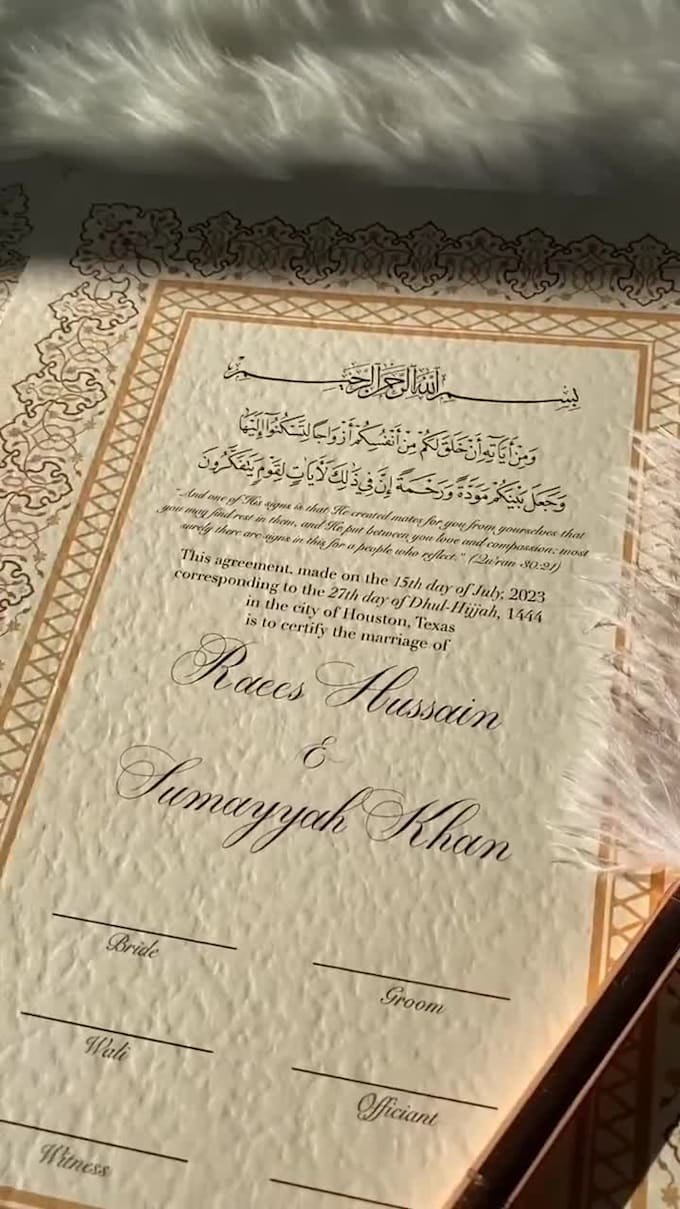 بسم الله الرحمن الرحيم
وَمِنْ أَيَاتِهِ أَنْ خَلَقَ لَكُم مِنْ أَنْفُسِكُمْ أَزْوَاجًا لِتَسْكُنُوا إِلَيْهَا
وَجَعَلَ بَيْنَكُمْ مَوَدَّةً وَرَحْمَةً إِنَّ فِي ذَلِكَ لَآيَاتٍ لِقَوْمٍ يَتَفَكَّرُونَ
"And one of His signs is that He created mates for you from yourselves that
you may find rest in them, and He put between you love and compassion; most
surely there are signs in this for a people who reflect." (Qu'ran 30:21)
This agreement, made on the 15th day of July, 2023
corresponding to the 27th day of Dhul-Hijjah, 1444
in the city of Houston, Texas
is to certify the marriage of
Raees Hussain
&
Sumayyah Khan
Bride
Groom
Wali
Officiant
Witness